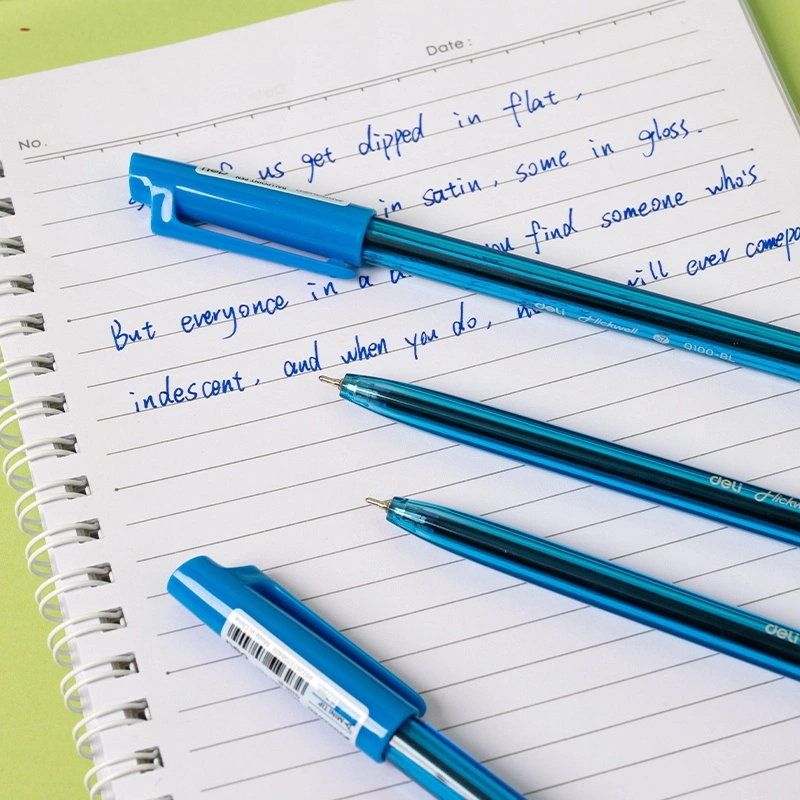 Date:
No.
us get dipped in flat,
in satin, some in gloss.
you find someone who's
But everyonce in a
will ever compa
indescent, and when you do,
deli
deli Flickwell Q100-BL
deli
deli